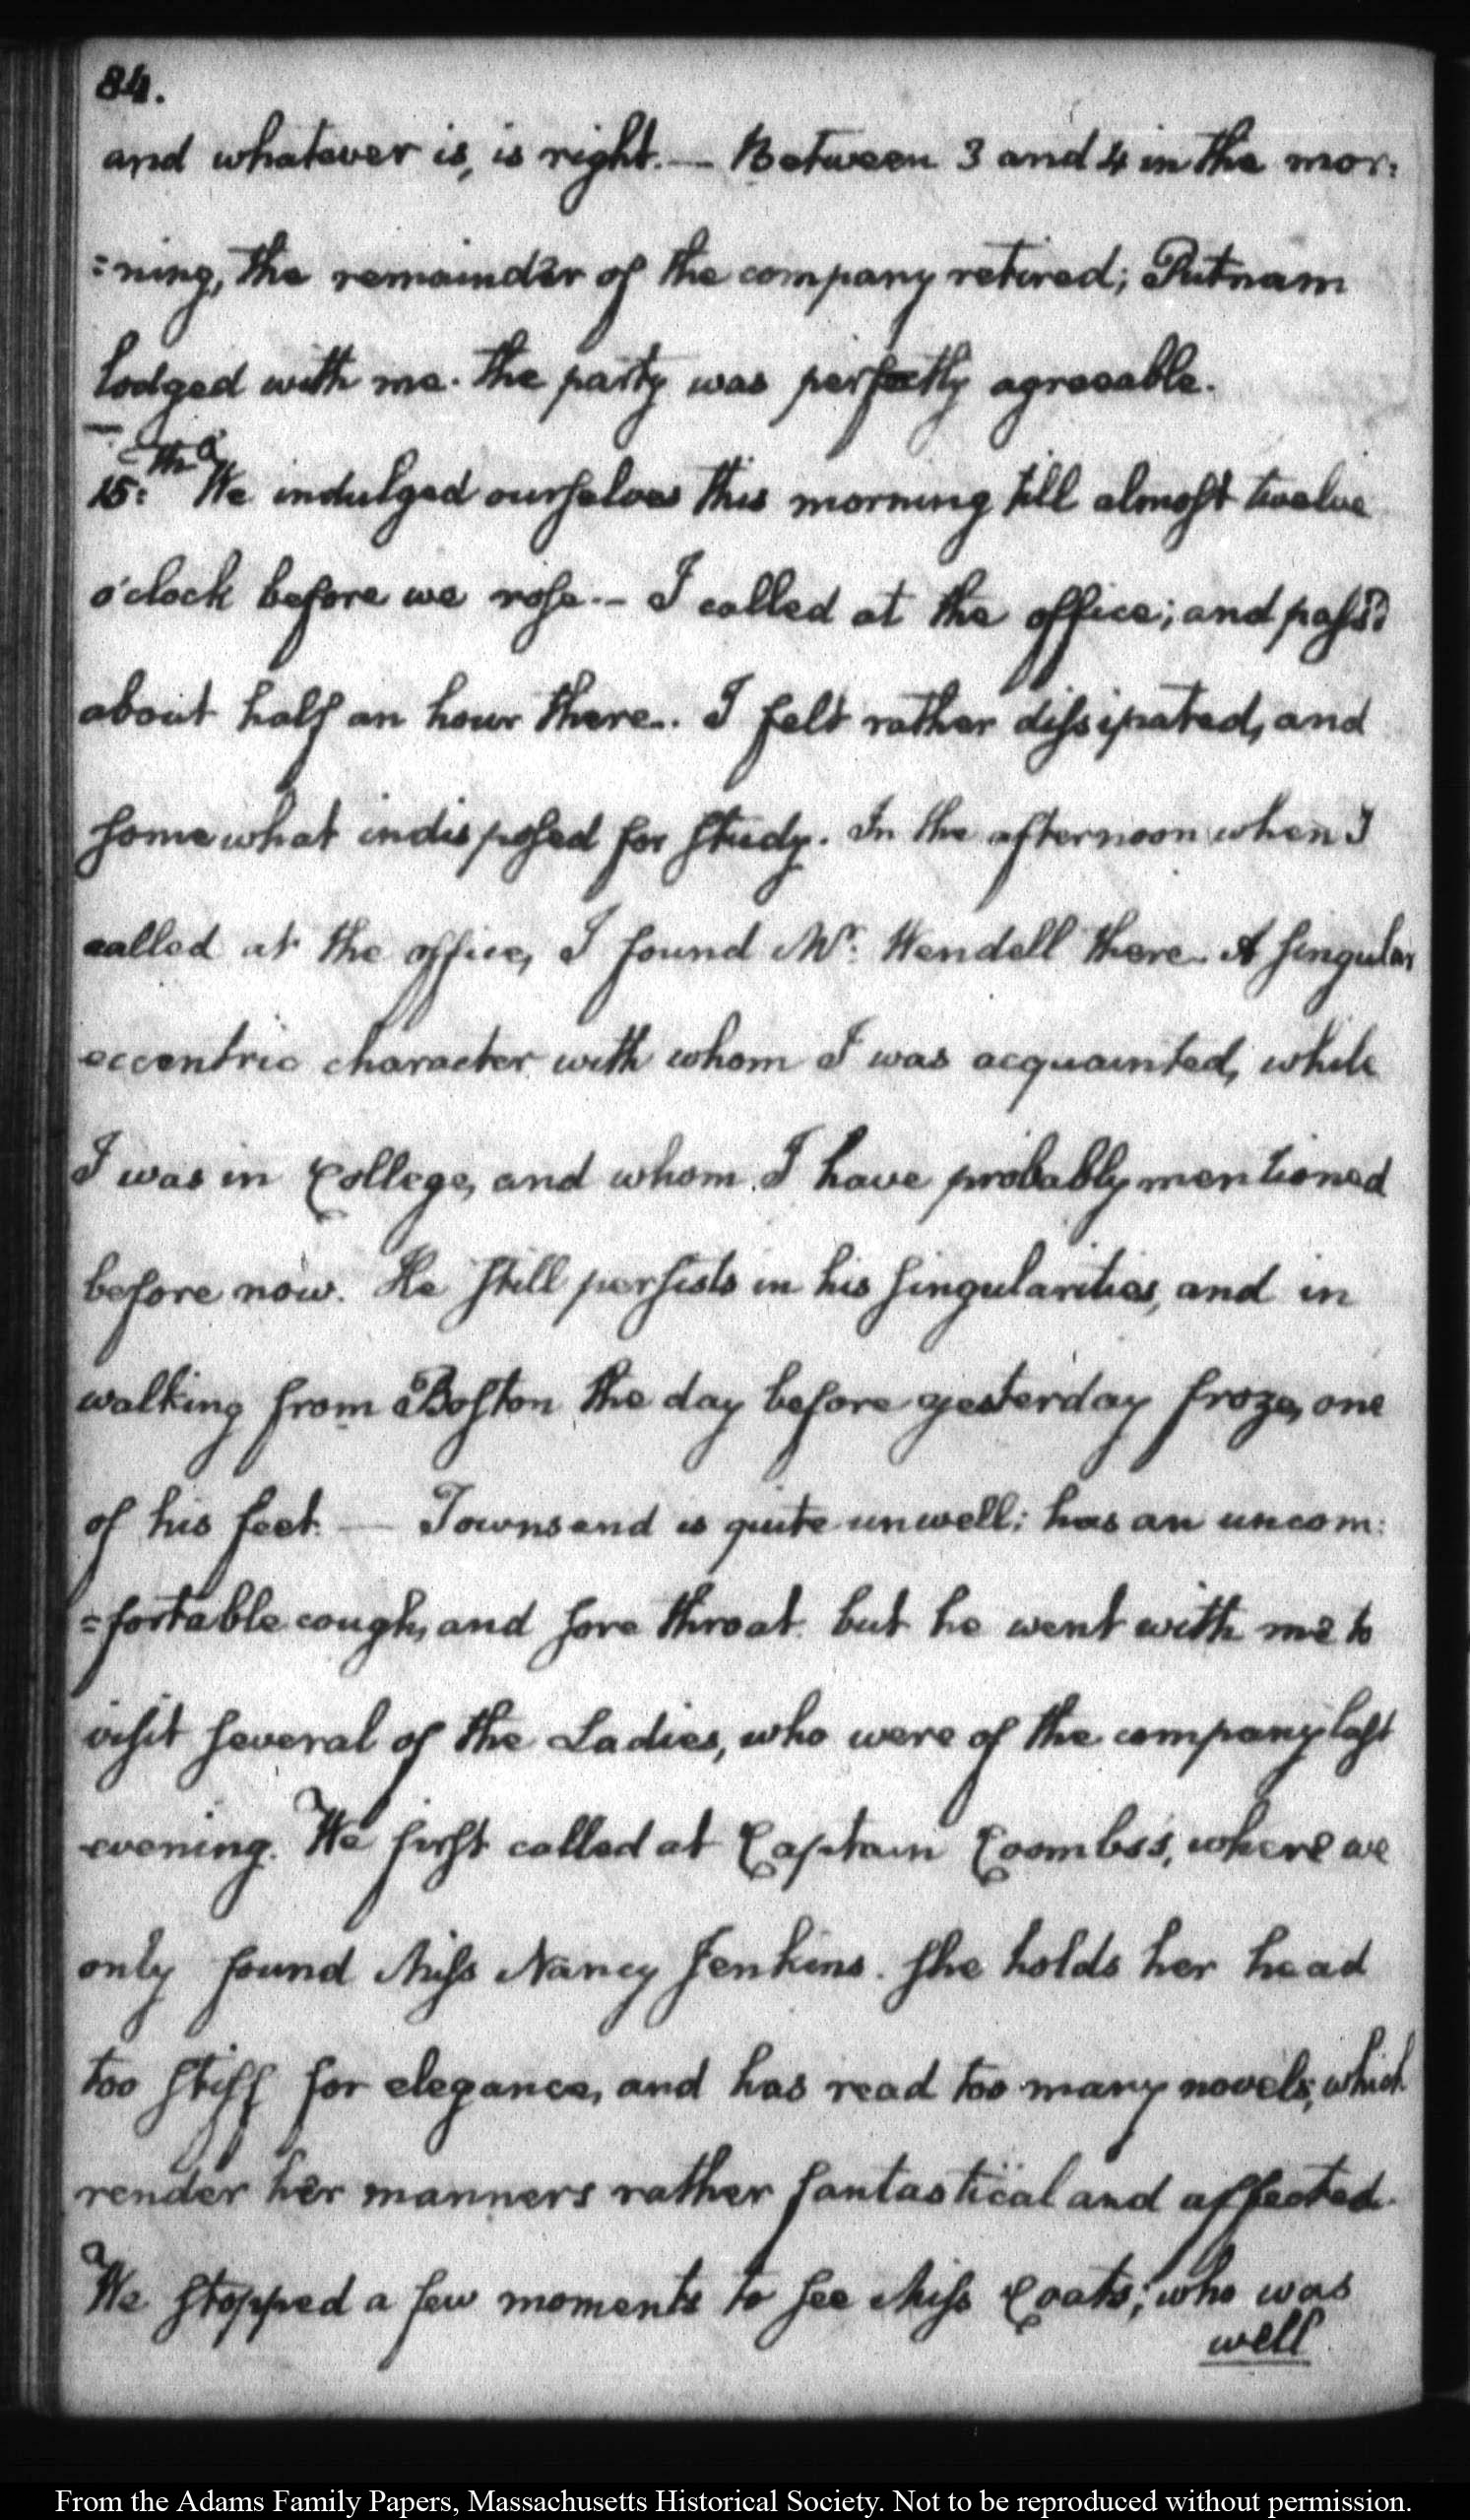 84.
and whatever is, is right. — Between 3 and 4 in the mor:
=ning, the remainder of the company retired; Putnam
lodged with me. The party was perfectly agreeable.
15:th We indulged ourselves this morning till almost twelve
o'clock before we rose.— I called at the office; and pass'd
about half an hour there.. I felt rather dissipated, and
somewhat indisposed for study. In the afternoon when I
called at the office, I found Mr: Wendell there. A singular
eccentric character with whom I was acquainted, while
I was in College, and whom I have probably mentioned
before now. He still persists in his singularities, and in
walking from Boston the day before yesterday froze, one
of his feet. — Townsend is quite unwell: has an uncom:
=fortable cough, and sore throat. but he went with me to
visit several of the Ladies, who were of the company last
evening. We first called at Captain Coombs's, where we
only found Miss Nancy Jenkins. She holds her head
too stiff for elegance, and has read too many novels; which
render her manners rather fantastical and affected.
We stopped a few moments to see Miss Coats; who was
well
From the Adams Family Papers, Massachusetts Historical Society. Not to be reproduced without permission.